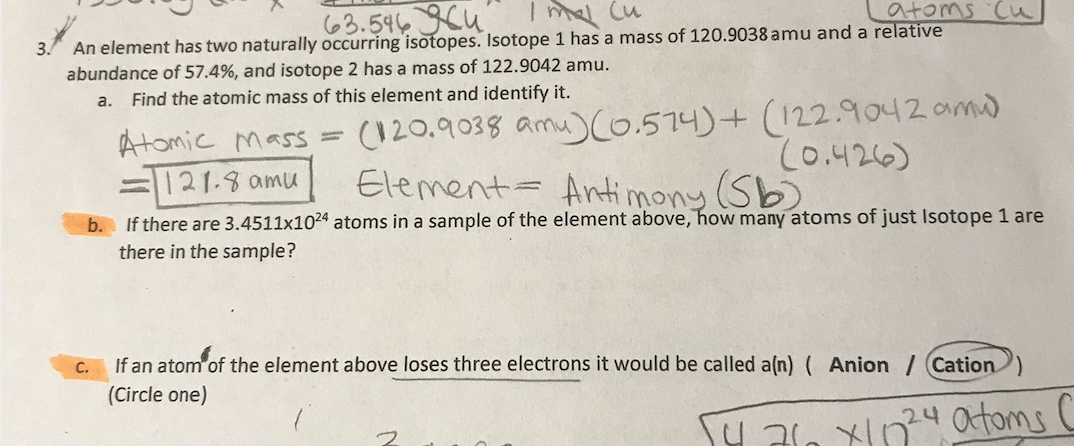 63.546 gCu 1 mol Cu atoms Cu
3. An element has two naturally occurring isotopes. Isotope 1 has a mass of 120.9038 amu and a relative
abundance of 57.4%, and isotope 2 has a mass of 122.9042 amu.
a. Find the atomic mass of this element and identify it.
Atomic mass = (120.9038 amu)(0.574) + (122.9042 amu)
(0.426)
= 121.8 amu Element = Antimony (Sb)
b. If there are 3.4511x10²⁴ atoms in a sample of the element above, how many atoms of just Isotope 1 are
there in the sample?
c. If an atom of the element above loses three electrons it would be called a(n) ( Anion / Cation )
(Circle one)
x10²⁴ atoms